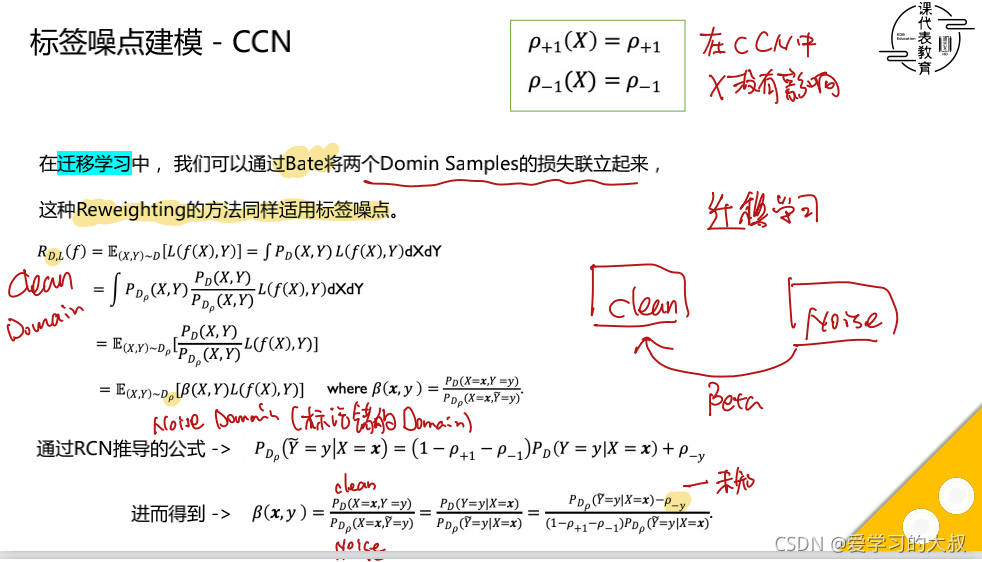 标签噪点建模 - CCN
ρ₊₁(X) = ρ₊₁
ρ₋₁(X) = ρ₋₁
在CCN中
X没有影响
课代表教育
在迁移学习中， 我们可以通过Bate将两个Domin Samples的损失联立起来，
这种Reweighting的方法同样适用标签噪点。
迁移学习
R_{D,L}(f) = 𝔼_{(X,Y)~D}[L(f(X),Y)] = ∫ P_D(X,Y) L(f(X),Y)dXdY
Clean
Domain
= ∫ P_{D_ρ}(X,Y) \frac{P_D(X,Y)}{P_{D_ρ}(X,Y)} L(f(X),Y)dXdY
clean
Noise
= 𝔼_{(X,Y)~D_ρ}[\frac{P_D(X,Y)}{P_{D_ρ}(X,Y)} L(f(X),Y)]
= 𝔼_{(X,Y)~D_ρ}[β(X,Y)L(f(X),Y)] where β(x,y) = \frac{P_D(X=x,Y=y)}{P_{D_ρ}(X=x,Ỹ=y)}.
Beta
Noise Domain (标记错的Domain)
通过RCN推导的公式 -> P_{D_ρ}(Ỹ = y|X = x) = (1 − ρ₊₁ − ρ₋₁)P_D(Y = y|X = x) + ρ_{−y}
clean
一未知
进而得到 -> β(x,y) = \frac{P_D(X=x,Y=y)}{P_{D_ρ}(X=x,Ỹ=y)} = \frac{P_D(Y=y|X=x)}{P_{D_ρ}(Ỹ=y|X=x)} = \frac{P_{D_ρ}(Ỹ=y|X=x)−ρ_{−y}}{(1−ρ₊₁−ρ₋₁)P_{D_ρ}(Ỹ=y|X=x)}.
Noise
CSDN @爱学习的大叔